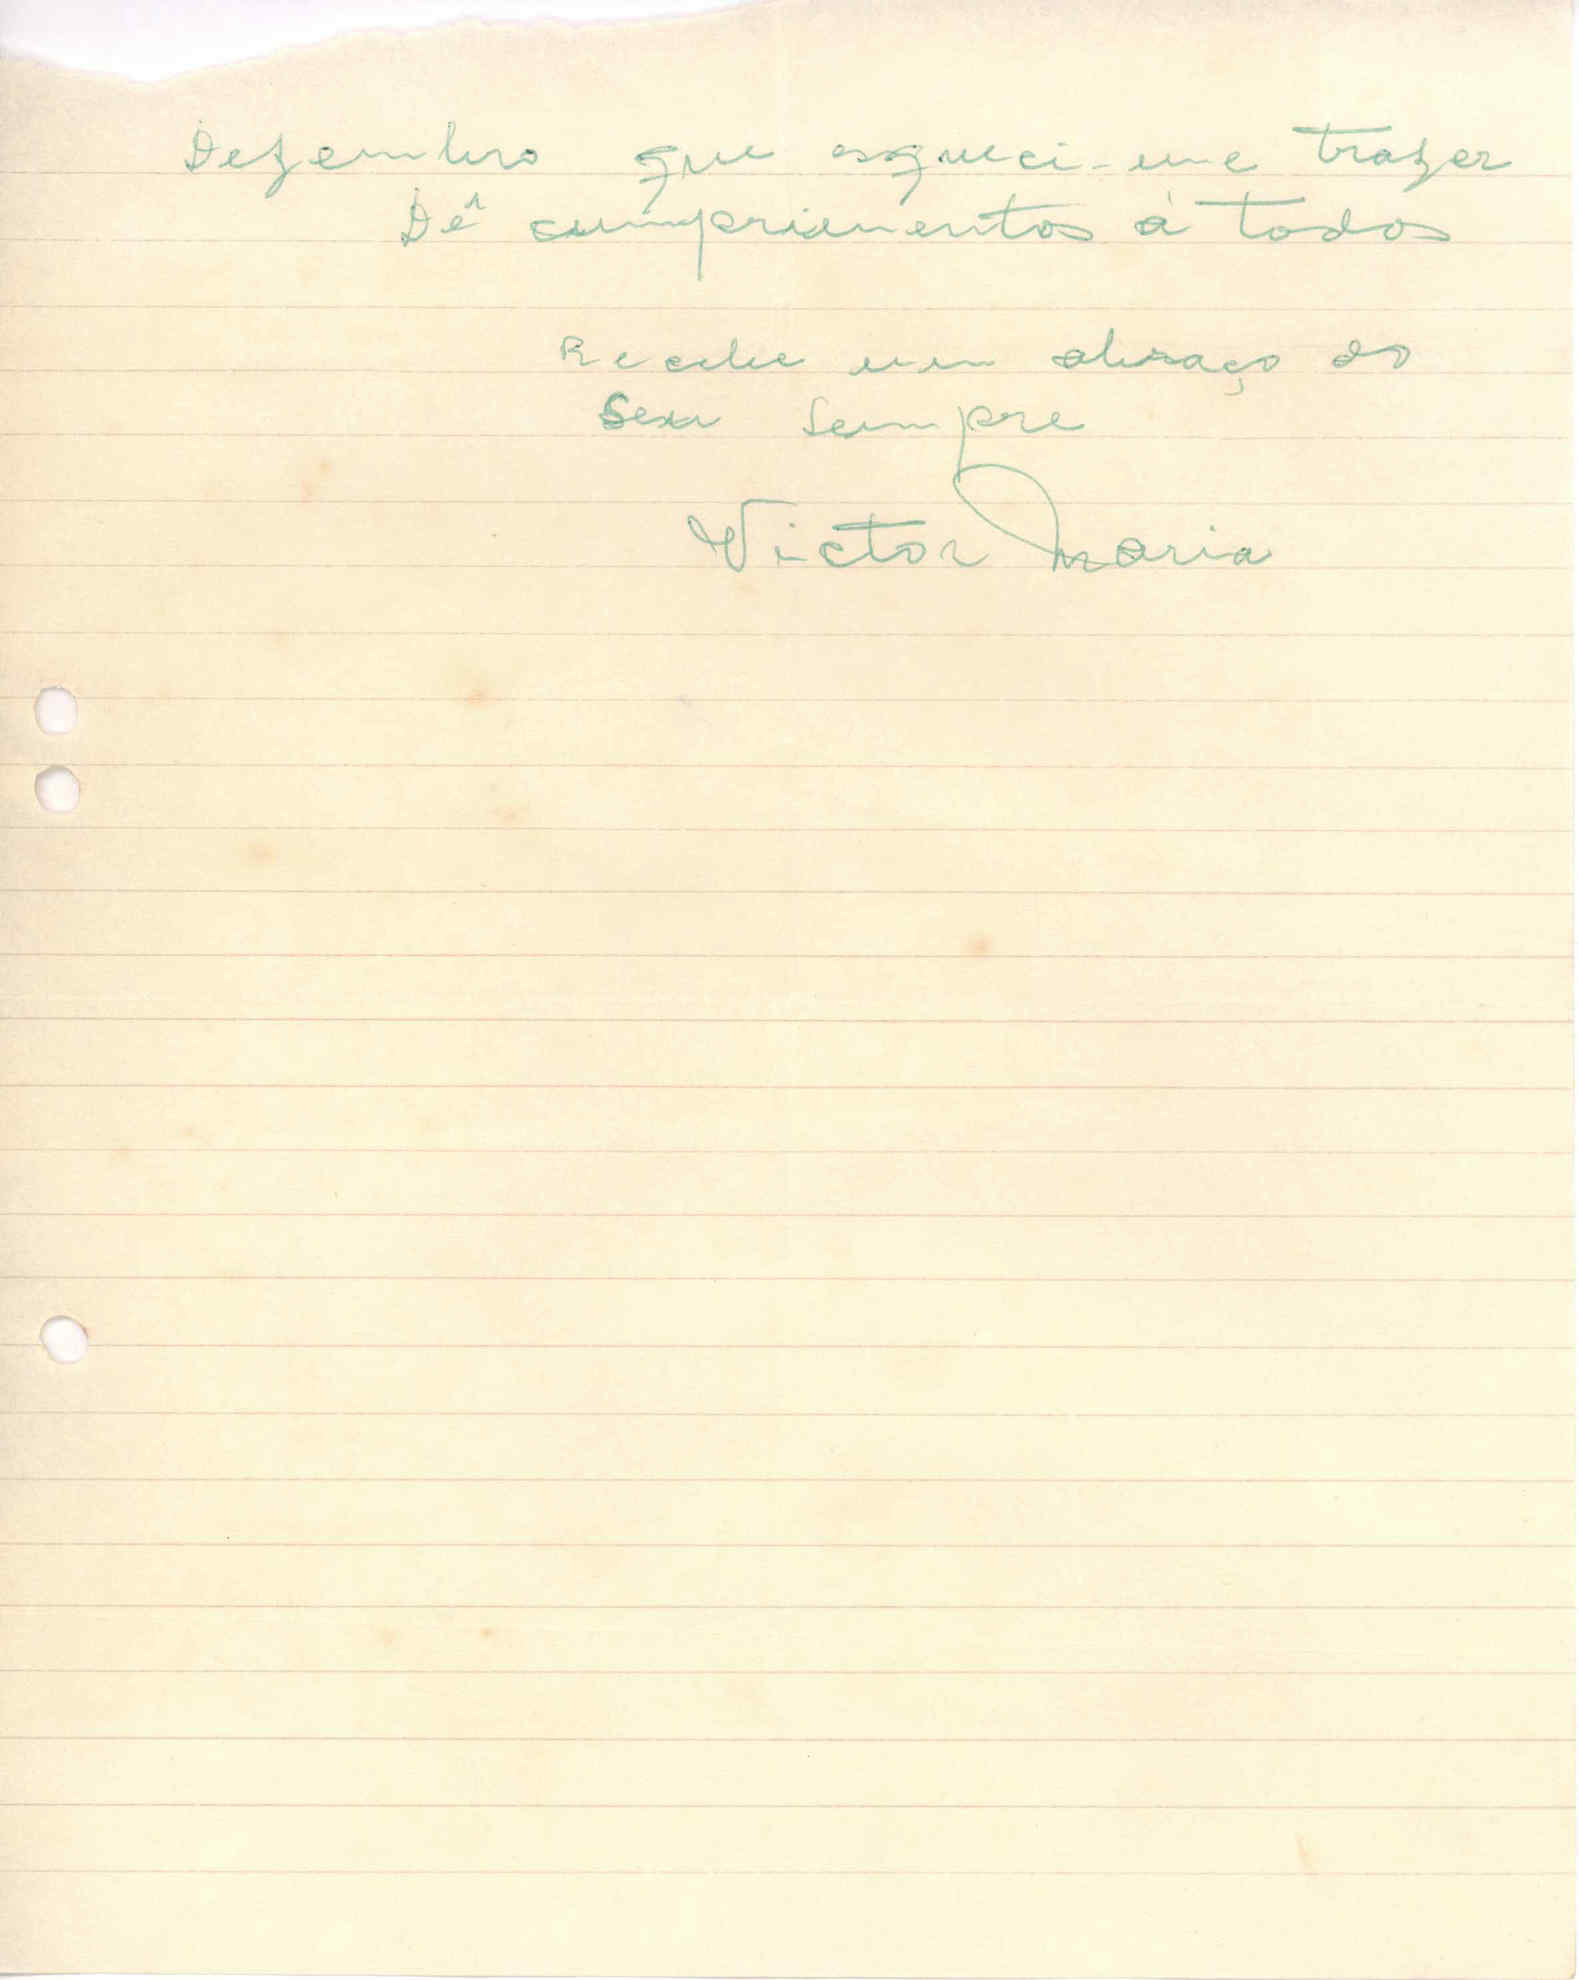 Dezembro que esqueci-me trazer
Dê cumprimentos á todos
Recebe um abraço do
Seu Sempre
Victor Maria